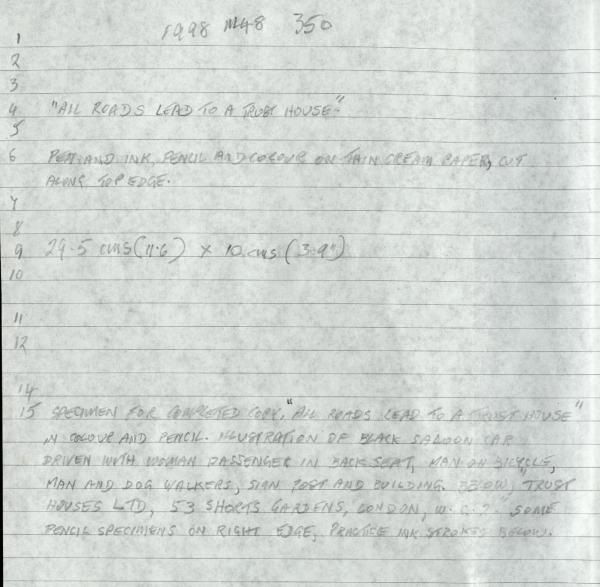 1998 M48 350
1
2
3
4 "ALL ROADS LEAD TO A TRUST HOUSE"
5
6 PEN AND INK, PENCIL AND COLOUR ON THIN CREAM PAPER, CUT
ALONG TOP EDGE.
7
8
9 29.5 cms (11.6) x 10 cms (3.9")
10
11
12
14
15 SPECIMEN FOR COMPLETED COPY, "ALL ROADS LEAD TO A TRUST HOUSE"
IN COLOUR AND PENCIL. ILLUSTRATION OF BLACK SALOON CAR
DRIVEN WITH WOMAN PASSENGER IN BACK SEAT, MAN ON BICYCLE,
MAN AND DOG WALKERS, SIGN POST AND BUILDING. BELOW, TRUST
HOUSES LTD, 53 SHORTS GARDENS, LONDON, W.C.2." SOME
PENCIL SPECIMENS ON RIGHT EDGE, PRACTICE INK STROKES BELOW.